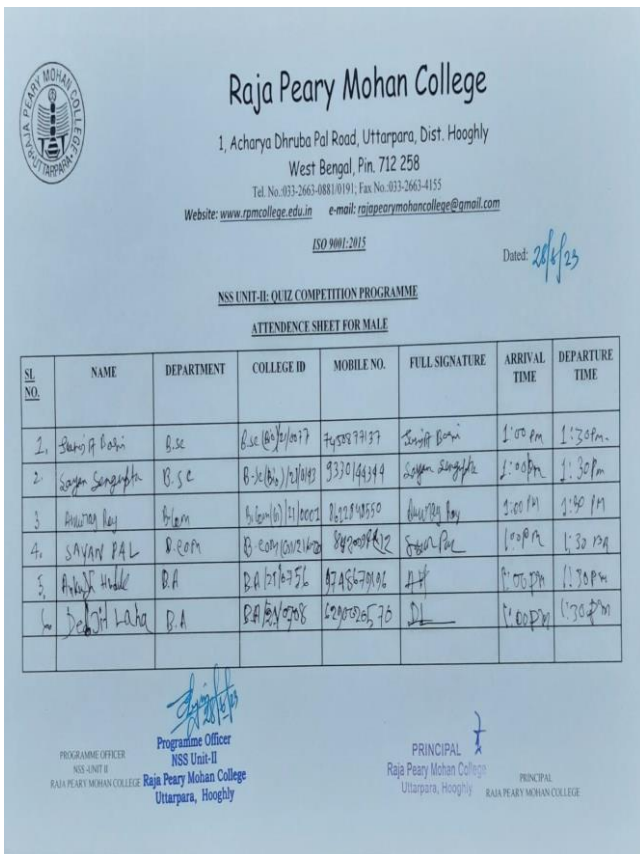 RAJA PEARY MOHAN COLLEGE
UTTARPARA
Raja Peary Mohan College
1, Acharya Dhruba Pal Road, Uttarpara, Dist. Hooghly
West Bengal, Pin. 712 258
Tel. No.:033-2663-0881/0191; Fax No.:033-2663-4155
Website: www.rpmcollege.edu.in e-mail: rajapearymohancollege@gmail.com
ISO 9001:2015
Dated: 28/6/23
NSS UNIT-II: QUIZ COMPETITION PROGRAMME
ATTENDENCE SHEET FOR MALE
SL NO. NAME DEPARTMENT COLLEGE ID MOBILE NO. FULL SIGNATURE ARRIVAL TIME DEPARTURE TIME
1. B.sc 7450877137 1:00 pm 1:30pm.
2. Sayan Sengupta B.sc Sayan Sengupta 1:00pm 1:30pm
3 Anurag Roy B.Com Anurag Roy 1:00 PM 1:30 PM
4. SAYAN PAL B.com Sayan Pal 1:00PM 1:30 PM
5. B.A BA/21/0756 9748679696 AH 1:00PM 1:30PM
6. Debjit Laha B.A BA/21/0708 6290026570 DL 1:00PM 1:30pm
28/6/23
PROGRAMME OFFICER
NSS -UNIT II
RAJA PEARY MOHAN COLLEGE
Programme Officer
NSS Unit-II
Raja Peary Mohan College
Uttarpara, Hooghly
PRINCIPAL
Raja Peary Mohan College
Uttarpara, Hooghly
PRINCIPAL
RAJA PEARY MOHAN COLLEGE